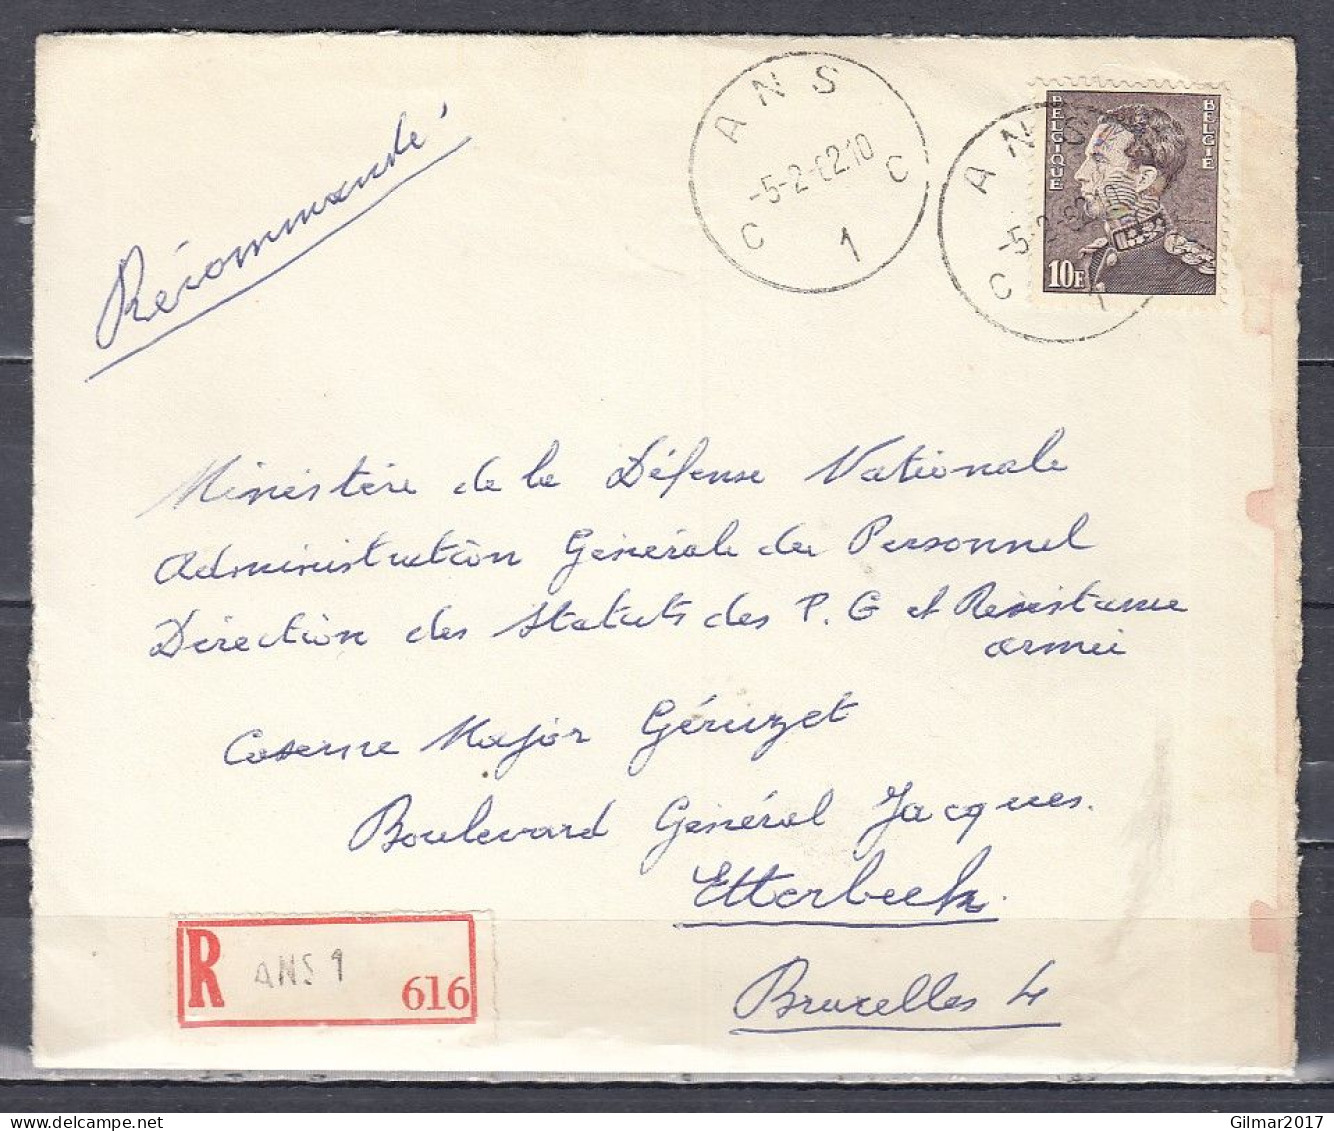 Récommandé
ANS
-5-2-62 10
C 1 C
ANS
-5-2-62
C 1
BELGIQUE
BELGIE
10F
Ministère de la Défense Nationale
Administration Générale du Personnel
Direction des Statuts des P. G et Résistance
armée
Caserne Major Géruzet
Boulevard Général Jacques.
Etterbeek.
Bruxelles 4
R ANS 1 616
Gilmar2017